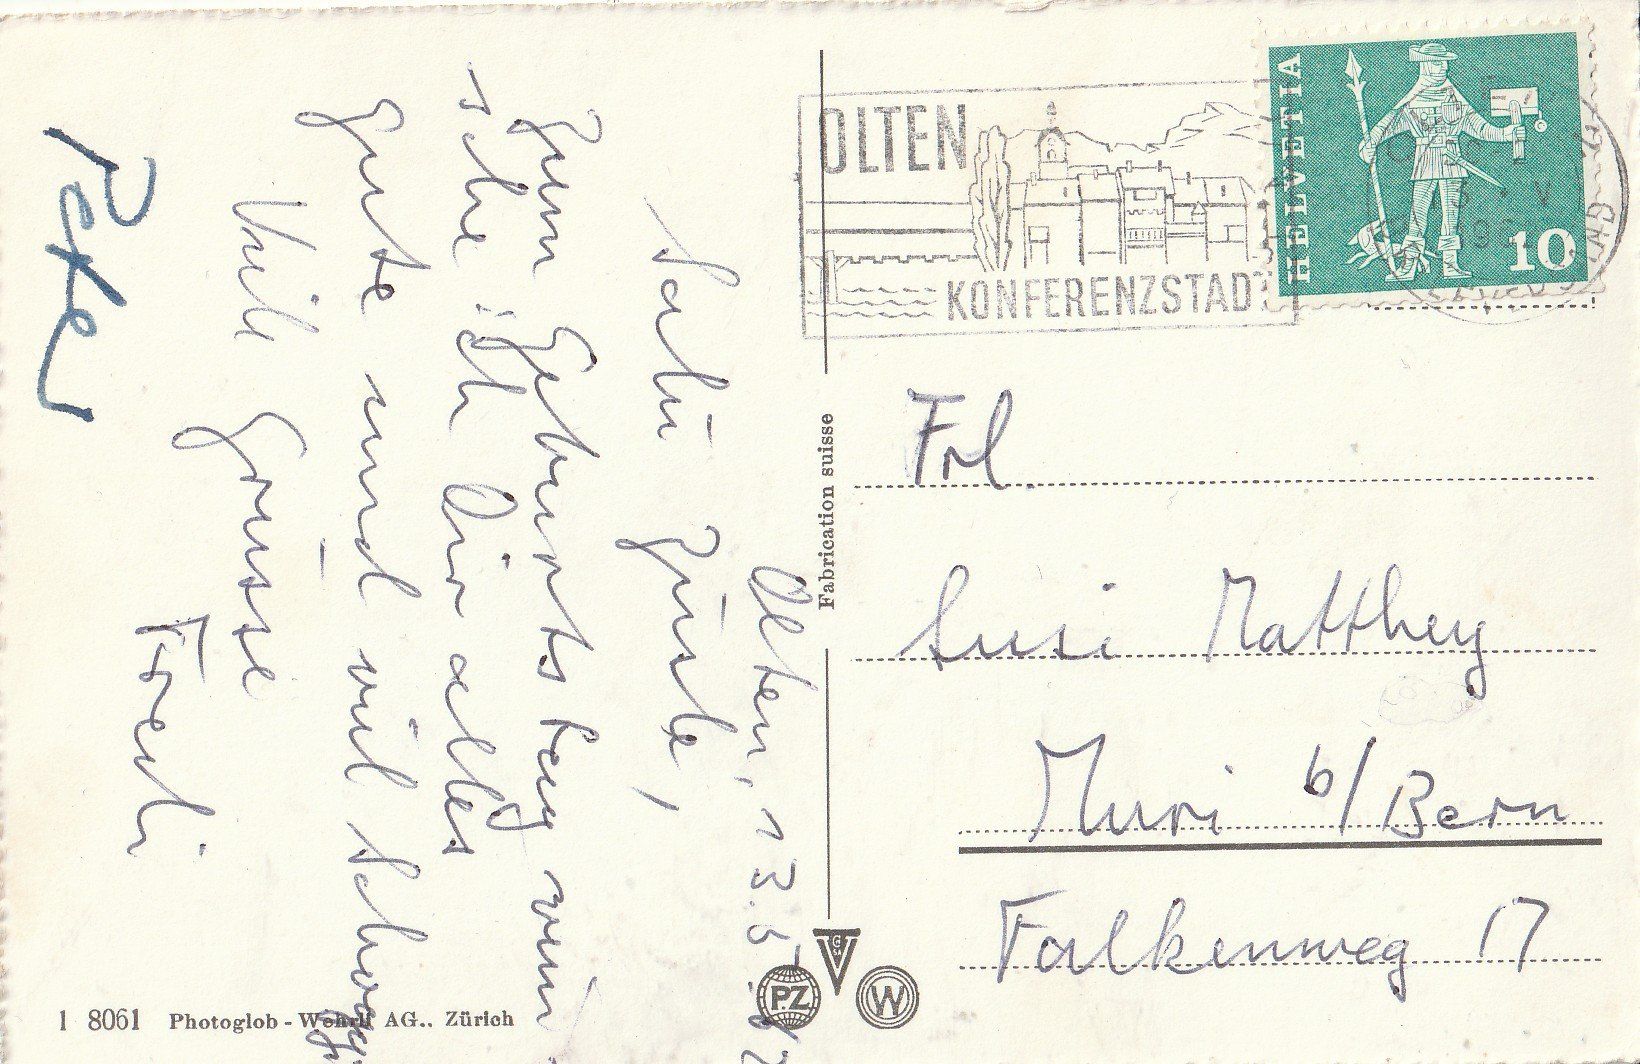 Olten, 13.5.
Salü Züsle,
Zum Geburtstag wün
sche ich Dir alles
Gute und viil
Viili Grüsse
Fredi
Peter
1 8061 Photoglob-Wehrli AG., Zürich
Fabrication suisse
PZ
W
OLTEN
KONFERENZSTADT
HELVETIA
10
Frl
Susi Matthey
Muri b/Bern
Falkenweg 17